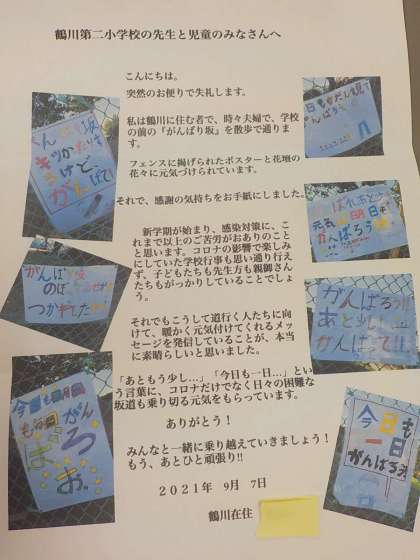 鶴川第二小学校の先生と児童のみなさんへ
こんにちは。
突然のお便りで失礼します。
私は鶴川に住む者で、時々夫婦で、学校
の前の『がんばり坂』を散歩で通りま
す。
フェンスに掲げられたポスターと花壇の
花々に元気づけられています。
それで、感謝の気持ちをお手紙にしました。
新学期が始まり、感染対策に、こ
れまで以上のご苦労がおありのこと
と思います。コロナの影響で楽しみ
にしていた学校行事も思い通り行え
ず、子どもたちも先生方も親御さん
たちもがっかりしていることでしょ
う。
それでもこうして道行く人たちに向
けて、暖かく元気付けてくれるメッ
セージを発信していることが、本当
に素晴らしいと思いました。
「あともう少し…」「今日も一日…」とい
う言葉に、コロナだけでなく日々の困難な
坂道も乗り切る元気をもらっています。
ありがとう！
みんなと一緒に乗り越えていきましょう！
もう、あとひと頑張り!!
2021年 9月 7日
鶴川在住
キツかたり
けど、
がんばろう
がんば
のぼ
つか
今日も
がん
ばろ
お
元気
明日も
がんばろう
がんばろう!!
あと少し!!!
がんばって!!!
今日も
一日
がんばろう